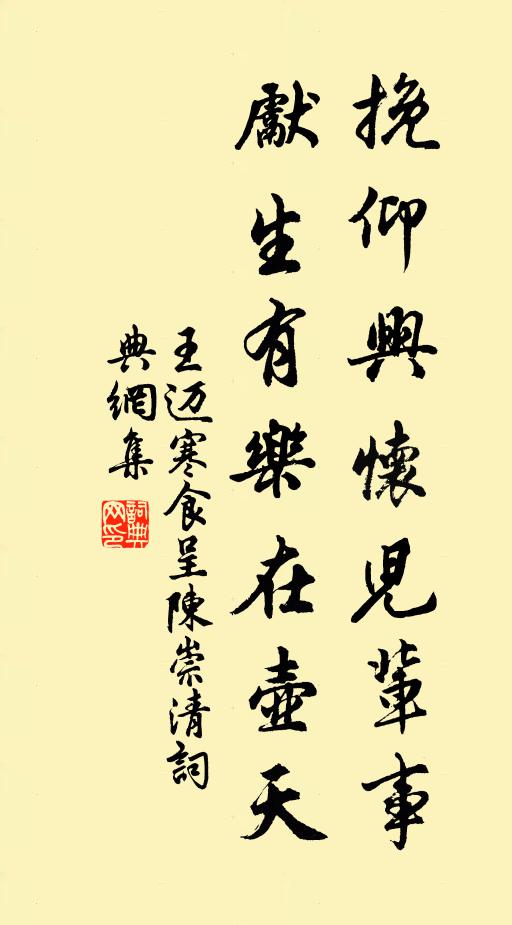 挽仰興懷兒輩事
獻生有樂在壺天
王迈寒食呈陳崇清詞
典網集
詞典
网印